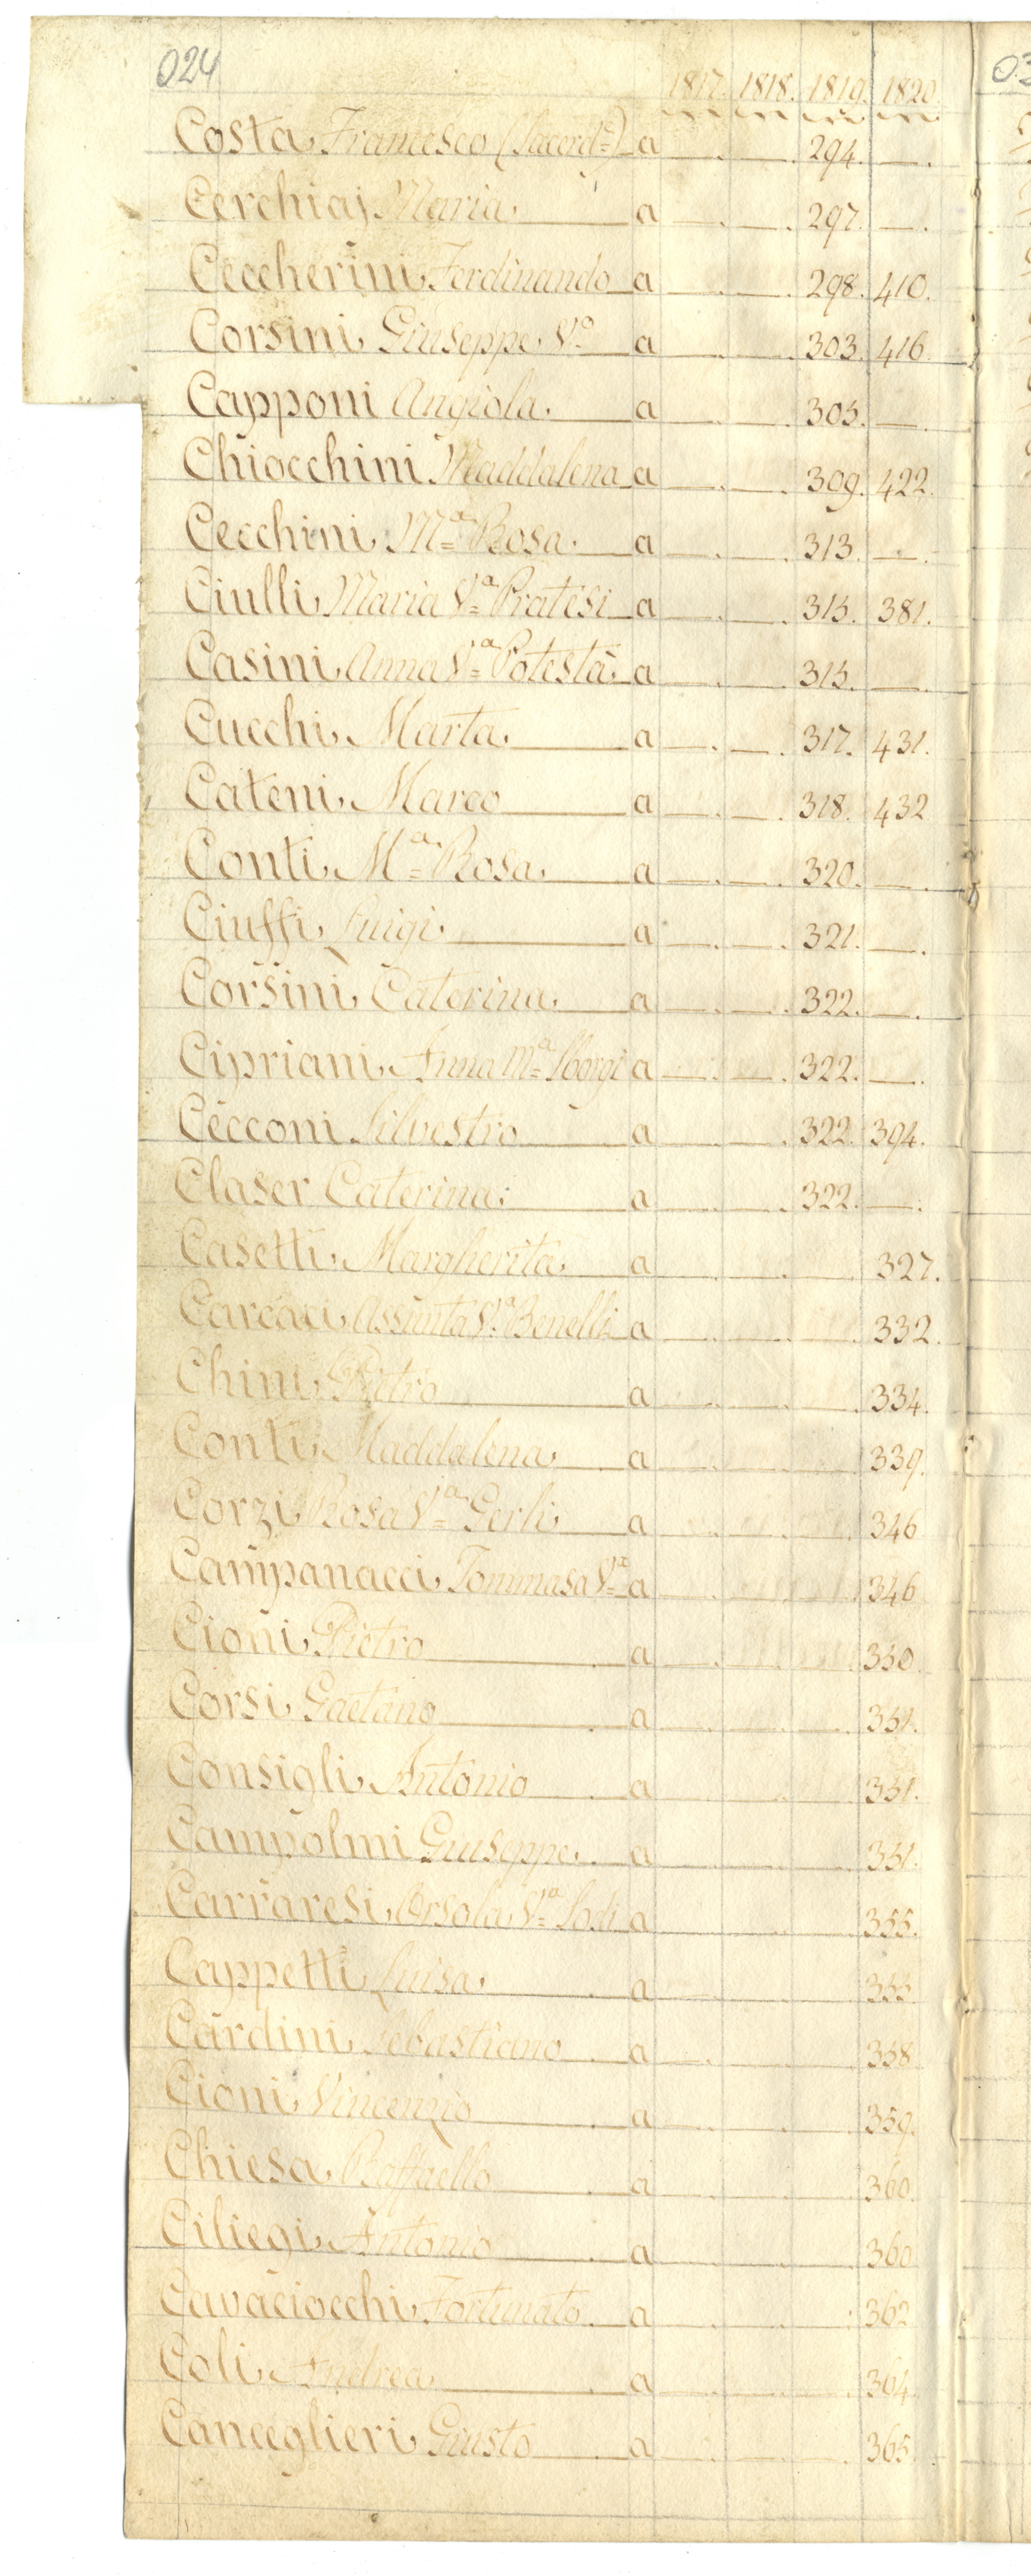 024
1817. 1818. 1819. 1820.
Costa, Francesco (Sacerd.e) a —. —. 294. —.
Cerchiaj Maria. a —. —. 297. —.
Ceccherini, Ferdinando a —. —. 298. 410.
Corsini, Giuseppe, V.o a —. —. 303. 416.
Capponi Angiola. a —. —. 305. —.
Chiocchini Maddalena a —. —. 309. 422.
Cecchini, M.a Rosa. a —. —. 313. —.
Ciulli, Maria V.a Pratesi a —. —. 315. 381.
Casini, Anna V.a Potestà. a —. —. 315. —.
Cucchi, Marta. a —. —. 317. 431.
Cateni, Marco a —. —. 318. 432
Conti, M.a Rosa. a —. —. 320. —.
Ciuffi, Luigi. a —. —. 321. —.
Corsini, Caterina. a —. —. 322. —.
Cipriani, Anna M.a Sborgi a —. —. 322. —.
Cecconi Silvestro a —. —. 322. 394.
Claser Caterina. a —. —. 322. —.
Casetti, Margherita. a —. —. —. 327.
Carcaci, Assunta V.a Benelli a —. —. —. 332.
Chini, Pietro a —. —. —. 334.
Conti, Maddalena. a —. —. —. 339.
Corzi, Rosa V.a Gerli. a —. —. —. 346
Campanacci, Tommasa V.a a —. —. —. 346
Cioni, Pietro a —. —. —. 350.
Corsi, Gaetano a —. —. —. 351.
Consigli, Antonio a —. —. —. 351.
Campolmi Giuseppe. a —. —. —. 351.
Carraresi, Orsola, V.a Sodi a —. —. —. 355.
Cappetti, Luisa. a —. —. —. 355.
Cardini, Sebastiano a —. —. —. 358
Cioni, Vincenzio a —. —. —. 359.
Chiesa, Raffaello a —. —. —. 360.
Ciliegi, Antonio a —. —. —. 360
Cavaciocchi, Fortunato a —. —. —. 362
Coli, Andrea a —. —. —. 364
Canceglieri, Giusto a —. —. —. 365.